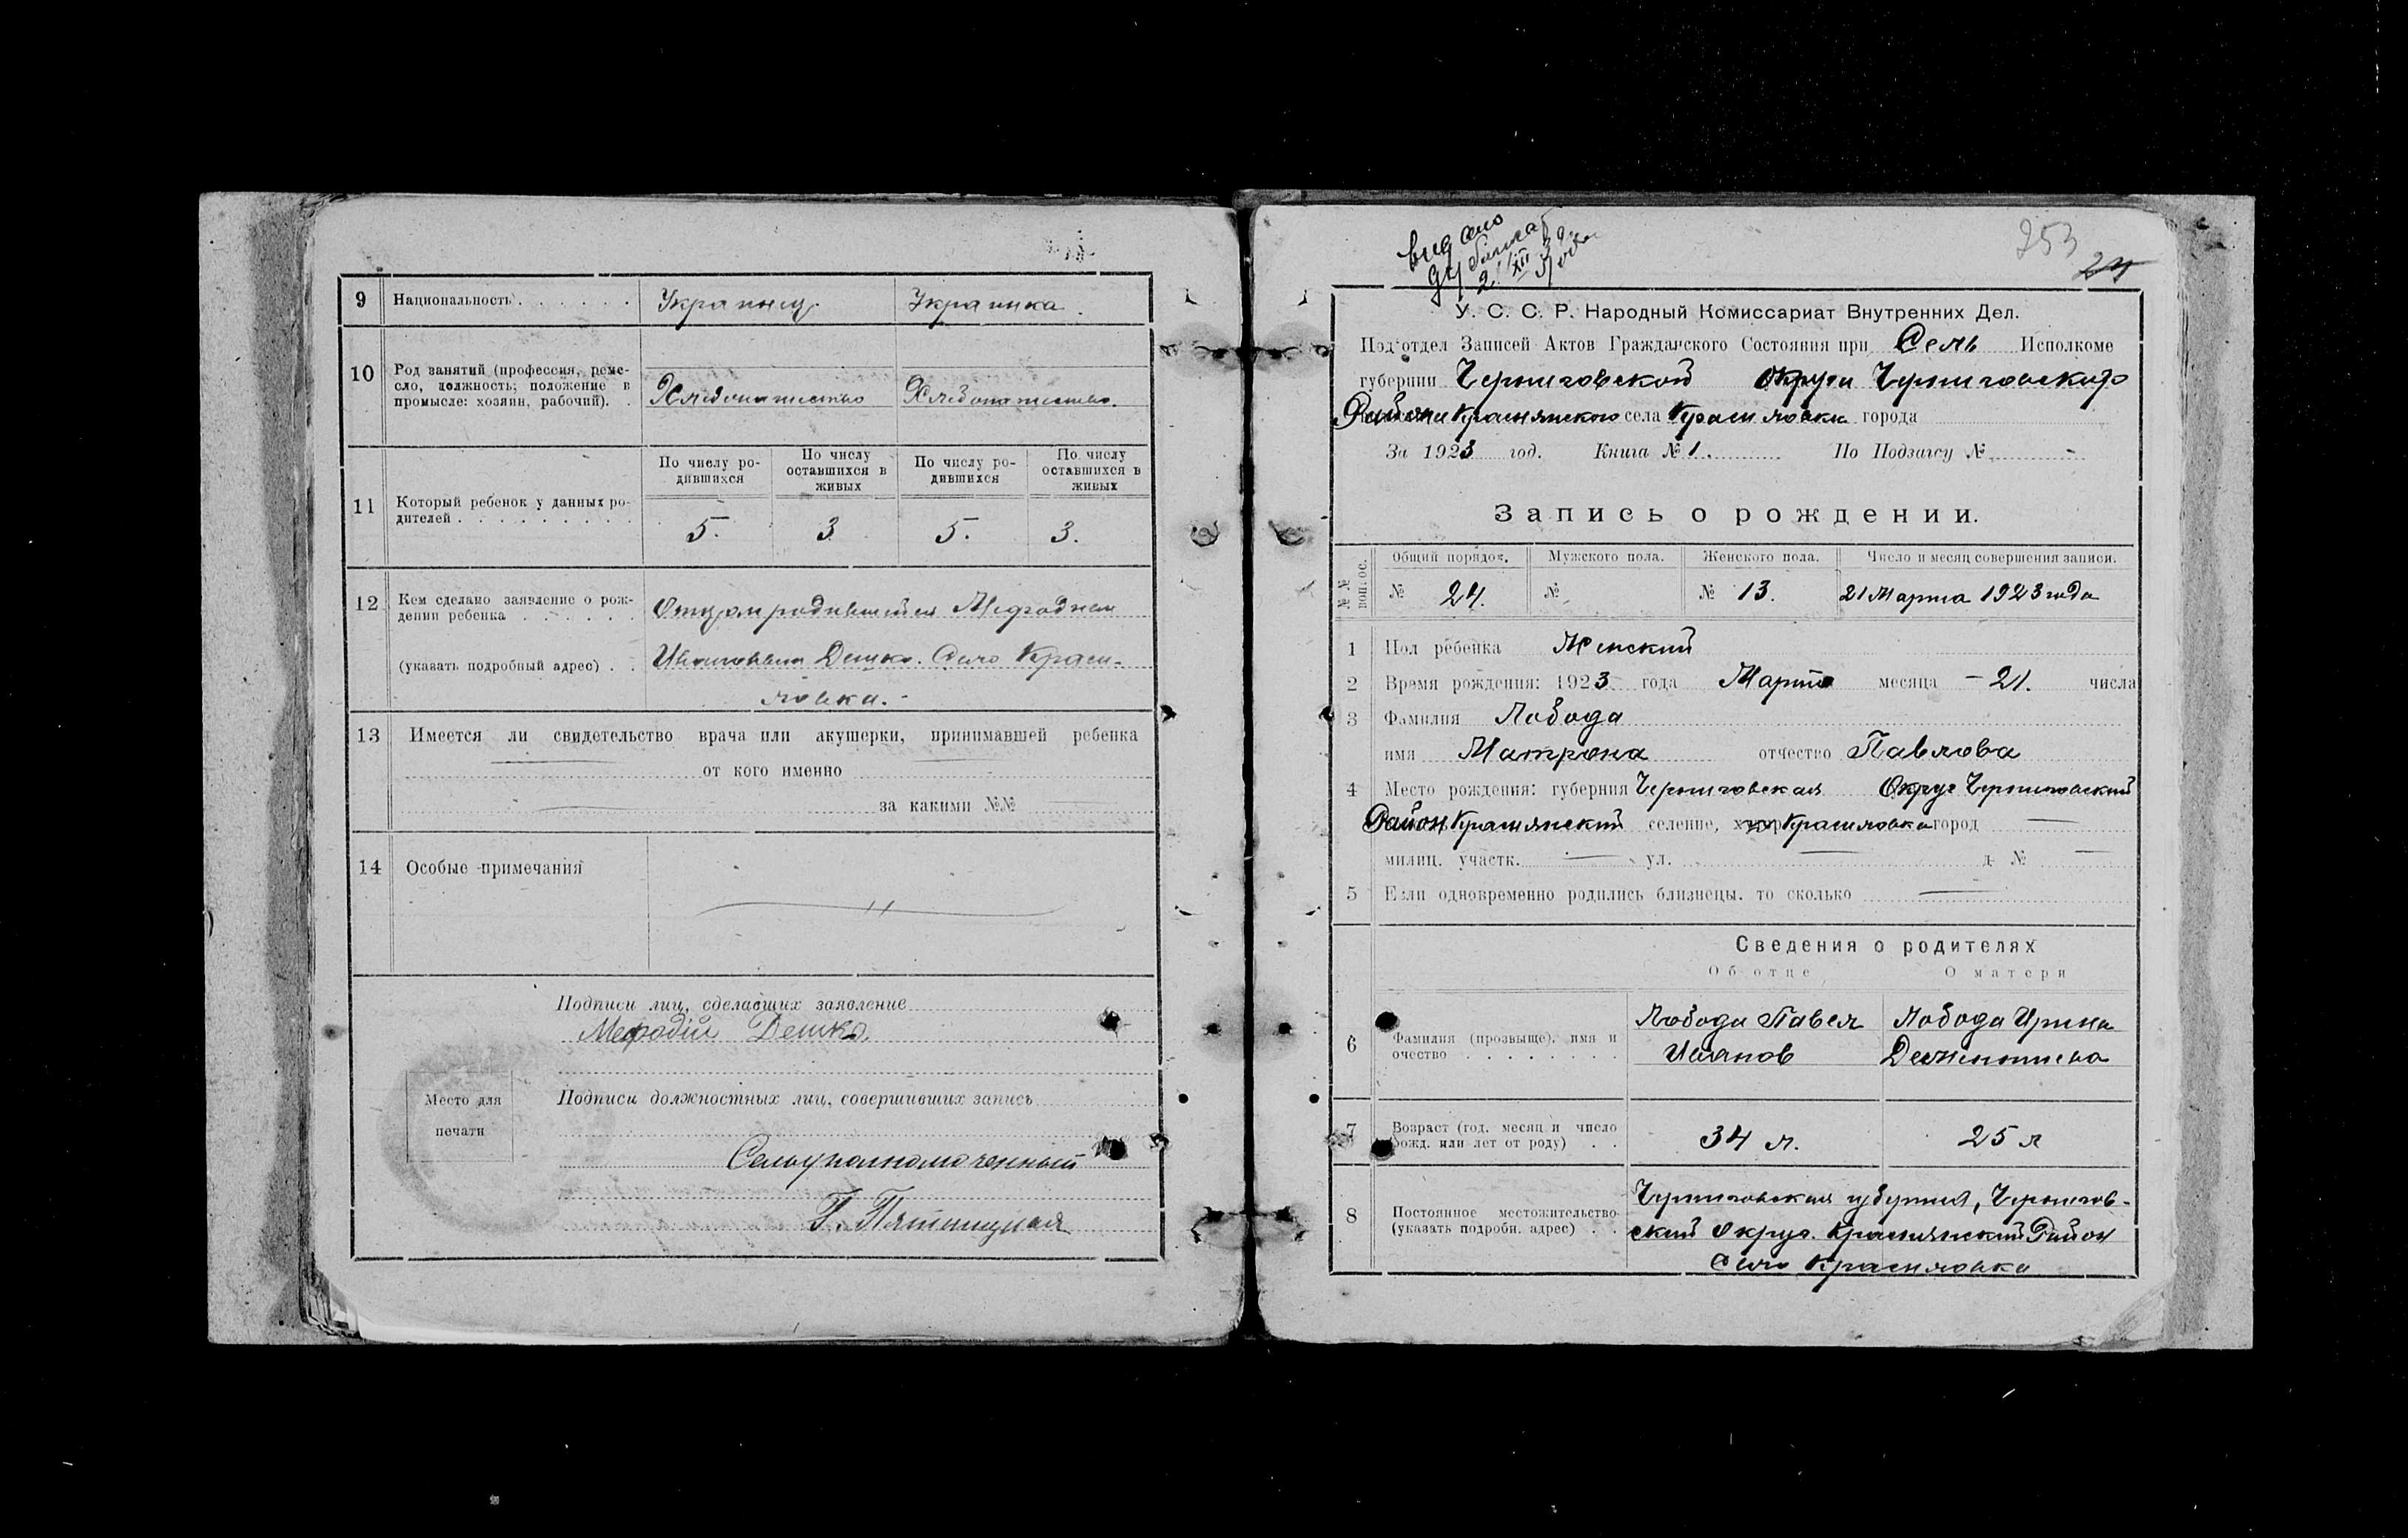 9 Национальность Украинец. Украинка.
10 Род занятий (профессия, реме-
сло, должность; положение в
промысле: хозяин, рабочий). Хлебопашество Хлебопашество.
По числу ро-
дившихся
По числу
оставшихся в
живых
По числу ро-
дившихся
По числу
оставшихся в
живых
11 Который ребенок у данных ро-
дителей 5. 3 5. 3.
12 Кем сделано заявление о рож-
дении ребенка Отцом родившейся Мефодием
(указать подробный адрес) Ивановым Дешко. Село Краси-
ловка.-
13 Имеется ли свидетельство врача или акушерки, принимавшей ребенка
от кого именно
за какими №№
14 Особые примечания
Подписи лиц, сделавших заявление
Мефодій Дешко.
Место для
печати
Подписи должностных лиц, совершивших запись
Сельуполномоченный
П. Пятницкая
видано
2/XII 39
253
24
У. С. С. Р. Народный Комиссариат Внутренних Дел.
Подотдел Записей Актов Гражданского Состояния при Сель Исполкоме
губернии Черниговской Округи Черниговского
Района Краснянского села Красиловки города
За 1923 год. Книга № 1. По Подзагсу № -
Запись о рождении.
№№ вопрос. Общий порядок. Мужского пола. Женского пола. Число и месяц совершения записи.
№ 24. № № 13. 21 Марта 1923 года
1 Пол ребенка Женский
2 Время рождения: 1923 года Марта месяца - 21. числа
3 Фамилия Лобода
имя Матрона отчество Павлова
4 Место рождения: губерния Черниговская Округ Черниговский
Район Краснянский селение, хутор Красиловка город —
милиц. участк. — ул. — д. № —
5 Если одновременно родились близнецы, то сколько —
Сведения о родителях
Об отце О матери
6 Фамилия (прозвыще), имя и
очество
Лобода Павел
Иванов
Лобода Ирина
Дементиева
7 Возраст (год, месяц и число
рожд. или лет от роду) 34 л. 25 л
8 Постоянное местожительство
(указать подробн. адрес)
Черниговская губерния, Чернигов-
ский Округ. Краснянский Район
Село Красиловка